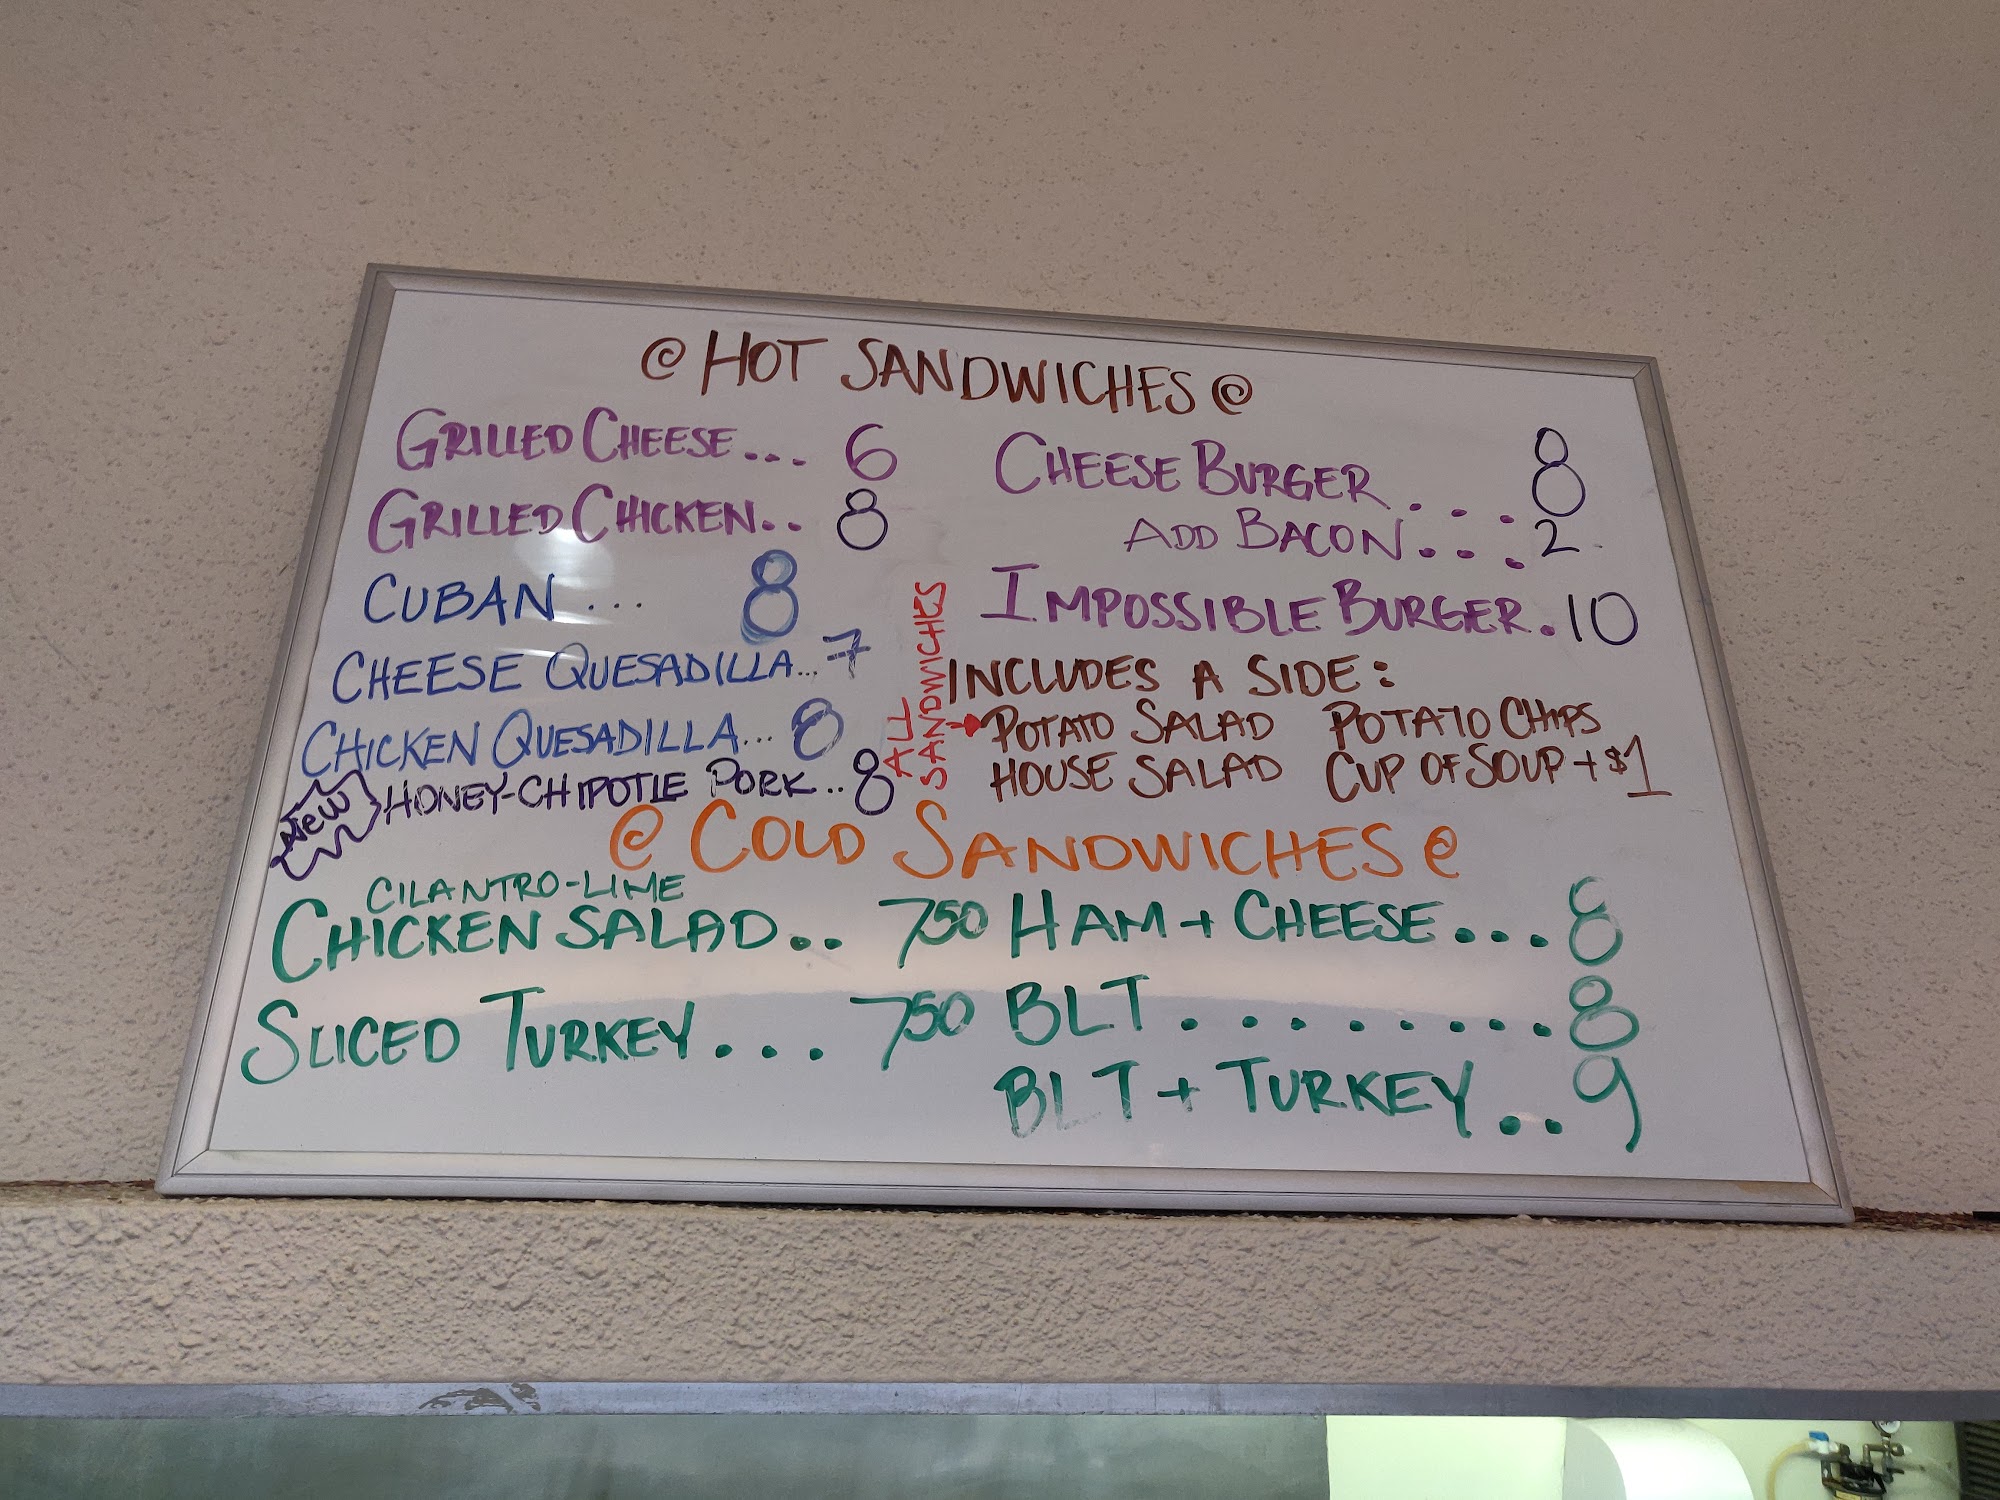 @ HOT SANDWICHES @
GRILLED CHEESE... 6
GRILLED CHICKEN.. 8
CUBAN ... 8
CHEESE QUESADILLA... 7
CHICKEN QUESADILLA... 8
NEW HONEY-CHIPOTLE PORK.. 8
CHEESE BURGER .... 8
ADD BACON.... 2
IMPOSSIBLE BURGER. 10
ALL SANDWICHES
INCLUDES A SIDE:
POTATO SALAD POTATO CHIPS
HOUSE SALAD CUP OF SOUP + $1
@ COLD SANDWICHES @
CILANTRO-LIME
CHICKEN SALAD.. 750
SLICED TURKEY... 750
HAM + CHEESE... 8
BLT........ 8
BLT + TURKEY.. 9